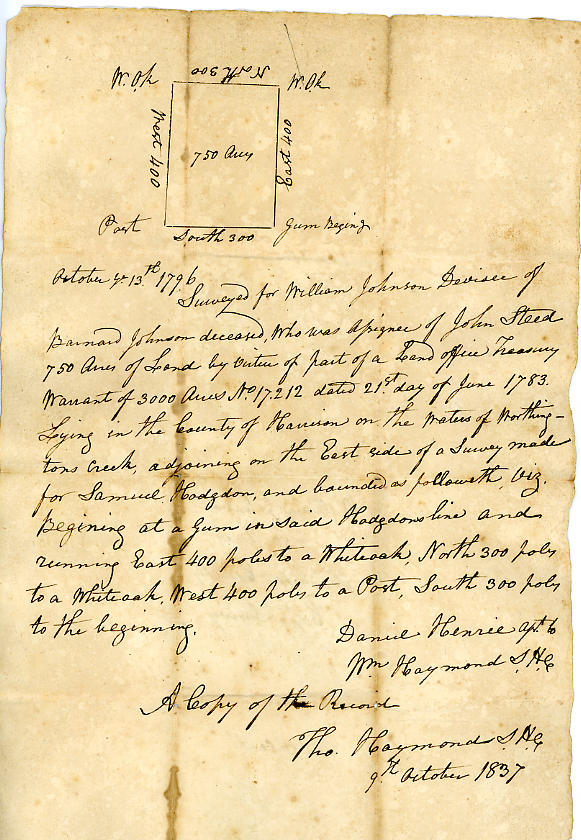 North 300
W. Ok
W. Ok
West 400
750 Acres
East 400
Post
Gum Begin̅g
South 300
October ye 13th 1796
Surveyed for William Johnson Devisee of
Barnard Johnson deceased, Who was assignee of John Steed
750 Acres of Land by virtue of part of a Land office Treasury
Warrant of 3000 Acres No 17.212 dated 21st day of June 1783.
Lying in the County of Harrison on the Waters of Worthing-
tons Creek, adjoining on the East side of a Survey made
for Samuel Hodgdon, and bounded as followeth, Viz.
Begining at a Gum in said Hodgdons line and
running East 400 poles to a Whiteoak, North 300 poles
to a Whiteoak, West 400 poles to a Post, South 300 poles
to the beginning.
Daniel Henrie asst to
Wm Haymond S.H.C
A Copy of the Record
Tho. Haymond S.H.C
9th October 1837